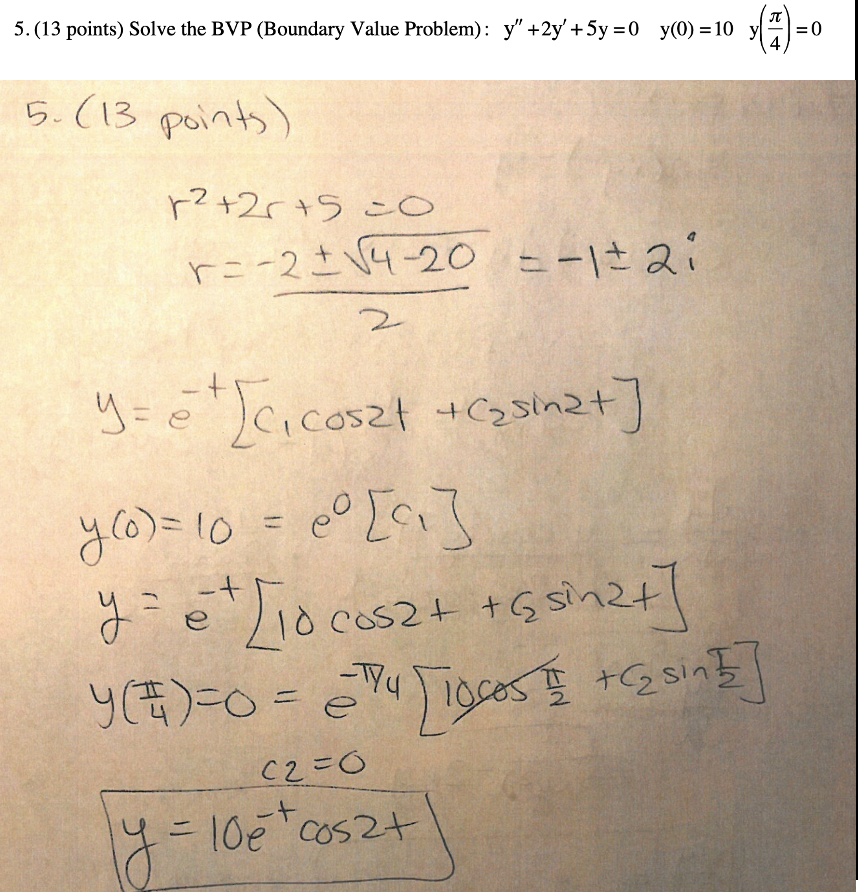 5. (13 points) Solve the BVP (Boundary Value Problem): y″ + 2y′ + 5y = 0 y(0) = 10 y(π/4) = 0
5. (13 points)
r² + 2r + 5 = 0
r = (-2 ± √(4-20))/2 = -1 ± 2i
y = e^(-t) [c₁cos2t + c₂sin2t]
y(0) = 10 = e⁰ [c₁]
y = e^(-t) [10 cos2t + c₂ sin2t]
y(π/4) = 0 = e^(-π/4) [10cos π/2 + c₂ sin π/2]
c2 = 0
y = 10e^(-t) cos2t